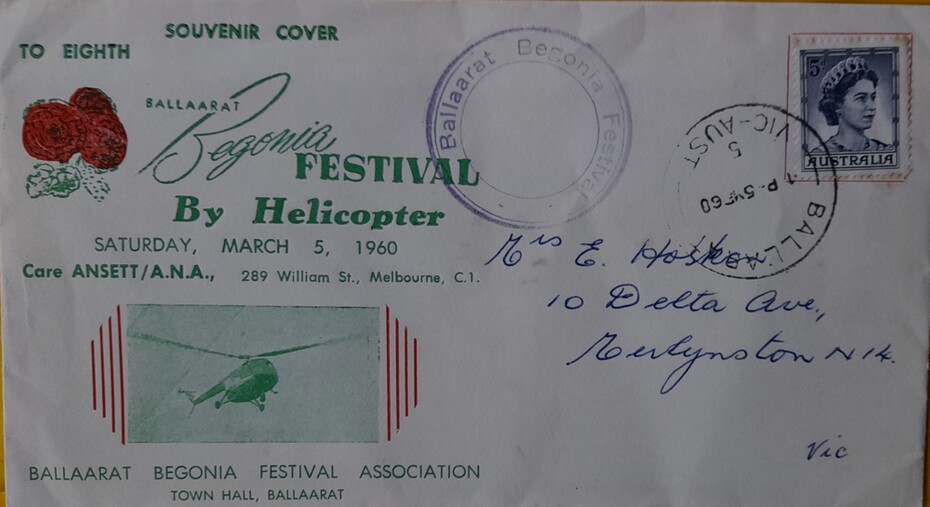 SOUVENIR COVER
TO EIGHTH
BALLAARAT
Begonia
FESTIVAL
By Helicopter
SATURDAY, MARCH 5, 1960
Care ANSETT/A.N.A., 289 William St., Melbourne, C.1.
BALLAARAT BEGONIA FESTIVAL ASSOCIATION
TOWN HALL, BALLAARAT
Ballaarat Begonia Festival
5d
AUSTRALIA
BALLARAT
VIC-AUST
5
1 P-5MR60
Mrs E. Hosken
10 Delta Ave.,
Merlynston N14.
Vic